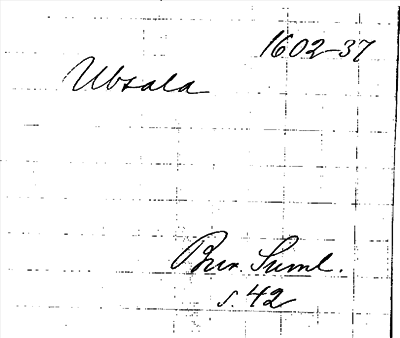 1602-37
Ubsala
Brev. Suml.
s. 42